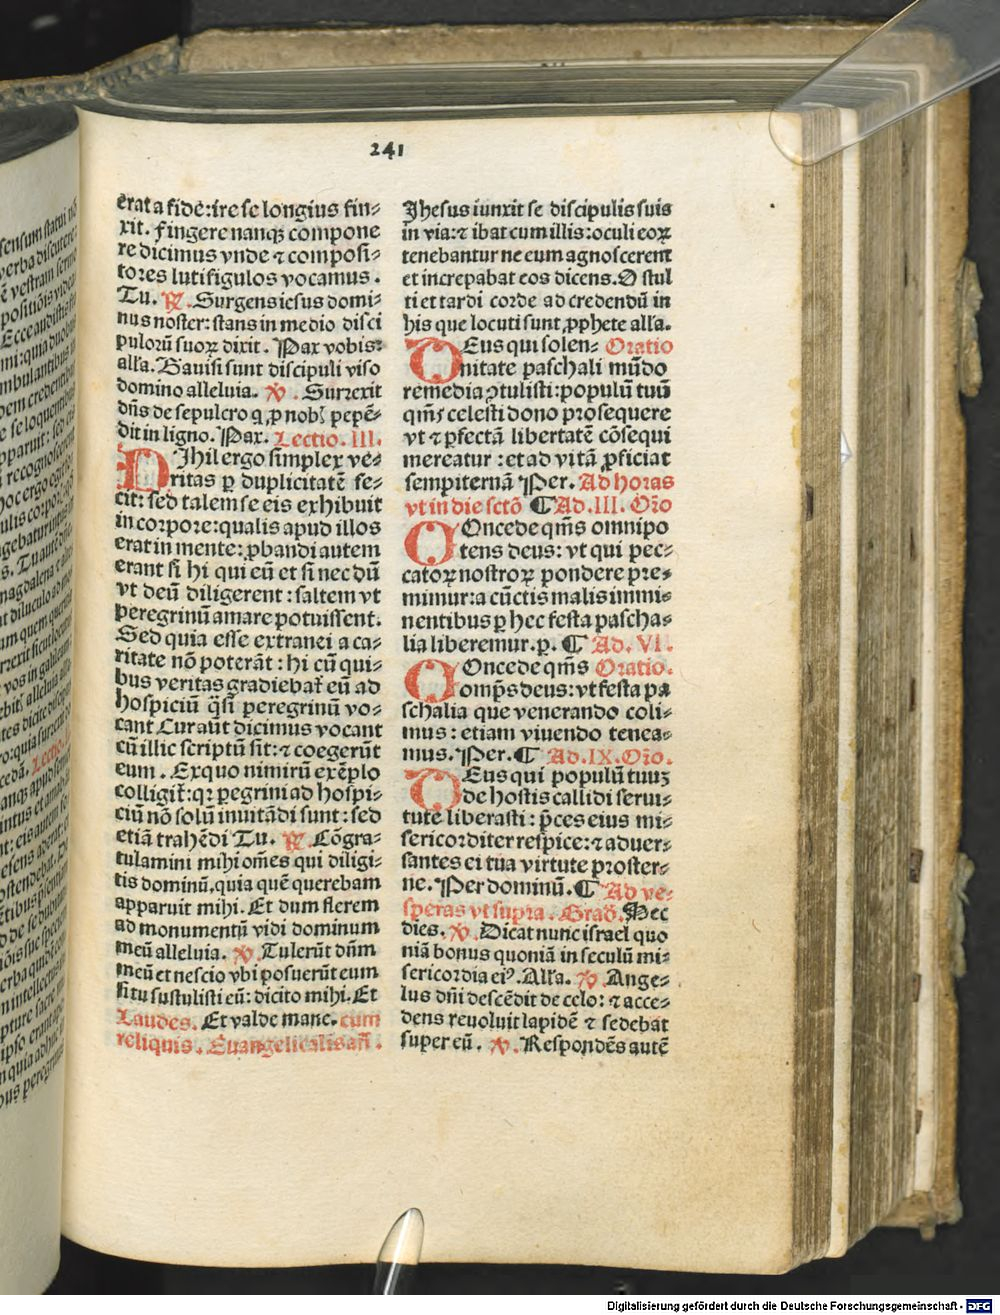 241
erat a fidē: ire se longius fin⸗
xit. Fingere nanqꝫ compone
re dicimus vnde ⁊ composi⸗
tores luti figulos vocamus.
Tu. ℟. Surgens iesus domi⸗
nus noster: stans in medio disci
puloꝝ suoꝝ dixit. Pax vobis:
alľa. Gauisi sunt discipuli viso
domino alleluia. ℣. Surrexit
dn̄s de sepulcro q ꝓ nobꝭ pepē⸗
dit in ligno. Pax. Lectio. III.
NIhil ergo simplex ve⸗
ritas ꝑ duplicitatē fe⸗
cit: sed talem se eis exhibuit
in corpore: qualis apud illos
erat in mente: ꝓbandi autem
erant si hi qui eū et si nec dū
vt deū diligerent: saltem vt
peregrinū amare potuissent.
Sed quia esse extranei a ca⸗
ritate nō poterāt: hi cū qui⸗
bus veritas gradiebat̄ eū ad
hospiciū q̄si peregrinū vo⸗
cant Cur aūt dicimus vocant
cū illic scriptū sit: ⁊ coegerūt
eum. Ex quo nimirū exēplo
colligit̄: qꝛ pegrini ad hospi⸗
ciū nō solū inuitādi sunt: sed
etiā trahēdi Tu. ℟. Cōgra⸗
tulamini mihi om̄es qui diligi⸗
tis dominū, quia quē querebam
apparuit mihi. Et dum flerem
ad monumentū vidi dominum
meū alleluia. ℣. Tulerūt dn̄m
meū et nescio vbi posuerūt eum
si tu sustulisti eū: dicito mihi. Et
Laudes. Et valde mane. cum
reliquis. Euangelicalis an̄.
Ihesus iunxit se discipulis suis
in via: ⁊ ibat cum illis: oculi eoꝝ
tenebantur ne eum agnoscerent
et increpabat eos dicens. O stul
ti et tardi corde ad credendū in
his que locuti sunt ꝓphete alľa.
DEus qui solen⸗ Oratio
nitate paschali mūdo
remedia ꝯtulisti: populū tuū
qm̄s celesti dono prosequere
vt ⁊ ꝑfectā libertatē cōsequi
mereatur: et ad vitā ꝓficiat
sempiternā Per. Ad horas
vt in die sctō ¶ Ad. III. Or̄o
COncede qm̄s omnipo
tens deus: vt qui pec⸗
catoꝝ nostroꝝ pondere pre⸗
mimur: a cūctis malis immi⸗
nentibus ꝑ hec festa pascha⸗
lia liberemur. p. ¶ Ad. VI.
COncede qm̄s Oratio.
omp̄s deus: vt festa pa
schalia que venerando coli⸗
mus: etiam viuendo tenea⸗
mus. Per. ¶ Ad. IX. Or̄o.
DEus qui populū tuuꝫ
de hostis callidi serui⸗
tute liberasti: p̄ces eius mi⸗
sericorditer respice: ⁊ aduer⸗
santes ei tua virtute proster⸗
ne. Per dominū. ¶ Ad ve⸗
speras vt supra. Grad̄. Hec
dies. ℣. Dicat nunc israel quo
niā bonus quoniā in seculū mi⸗
sericordia eiꝰ. Alľa. ℣. Ange⸗
lus dn̄i descēdit de celo: ⁊ acce⸗
dens reuoluit lapidē ⁊ sedebat
super eū. ℣. Respondēs autē
Digitalisierung gefördert durch die Deutsche Forschungsgemeinschaft - DFG